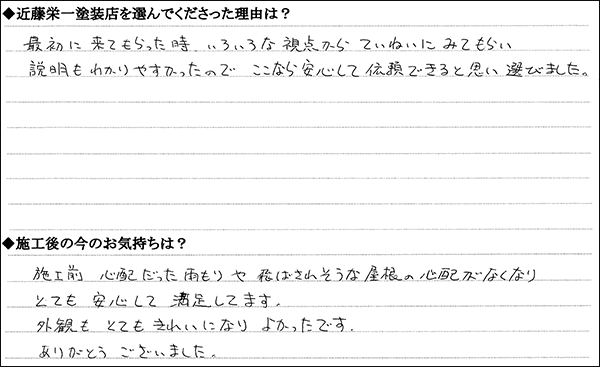 ◆近藤栄一塗装店を選んでくださった理由は？
最初に来てもらった時、いろいろな視点からていねいにみてもらい
説明もわかりやすかったので ここなら安心して依頼できると思い選びました。
◆施工後の今のお気持ちは？
施工前 心配だった雨もりや飛ばされそうな屋根の心配がなくなり
とても安心して満足してます。
外観もとてもきれいになりよかったです。
ありがとうございました。